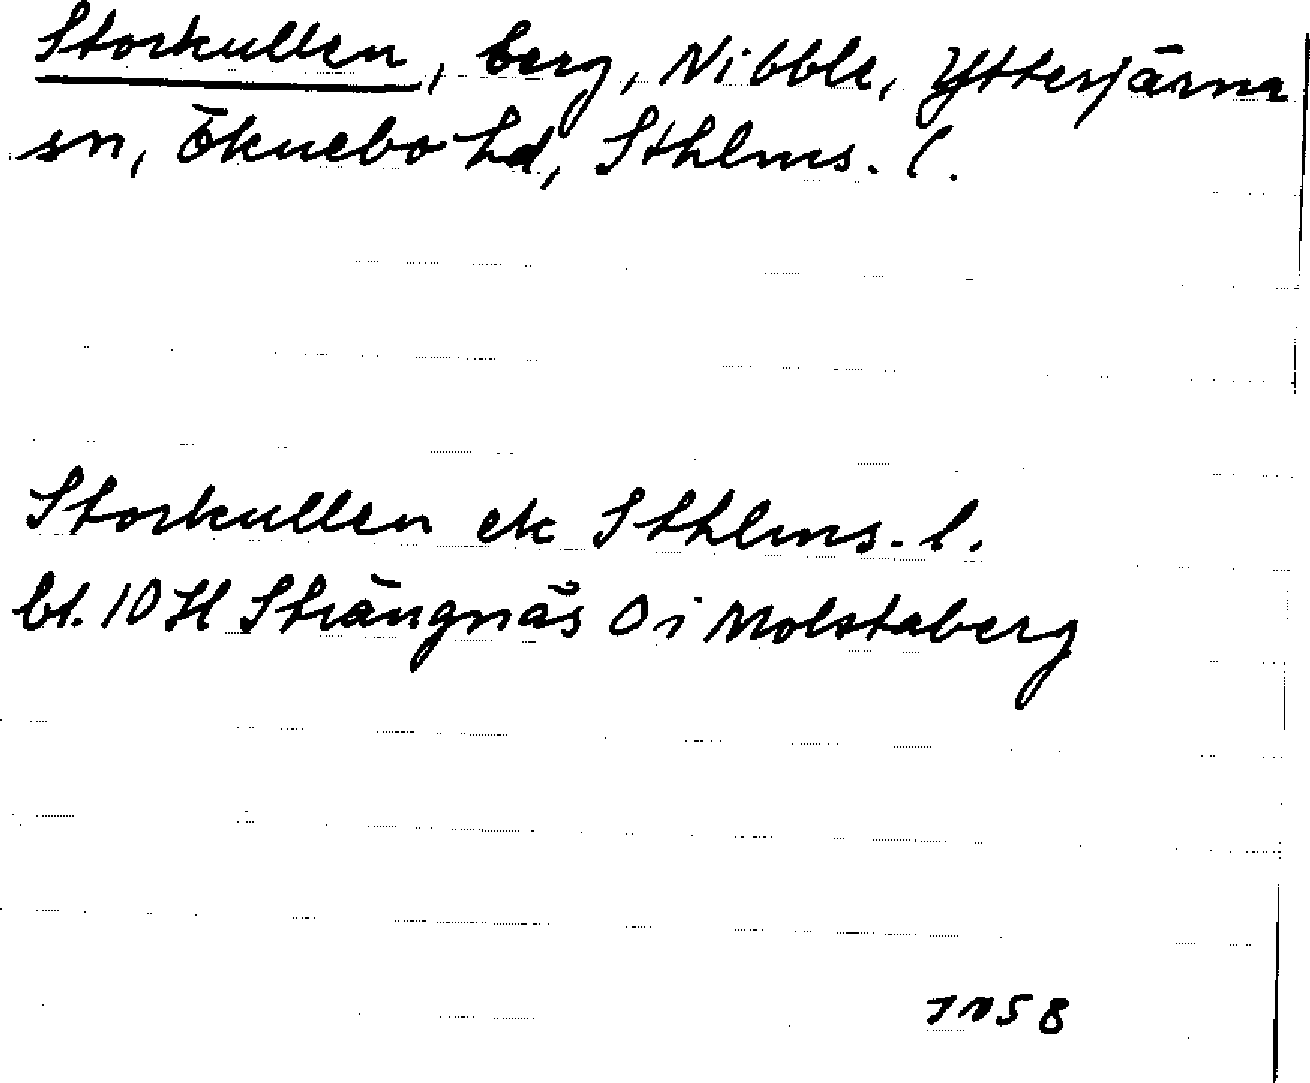 Storkullen, berg, Nibble, Ytterjärna
sn, Öknebo hd, Sthlms. l.
Storkullen ek Sthlms. l.
bl. 10 H Strängnäs Ö i Molstaberg